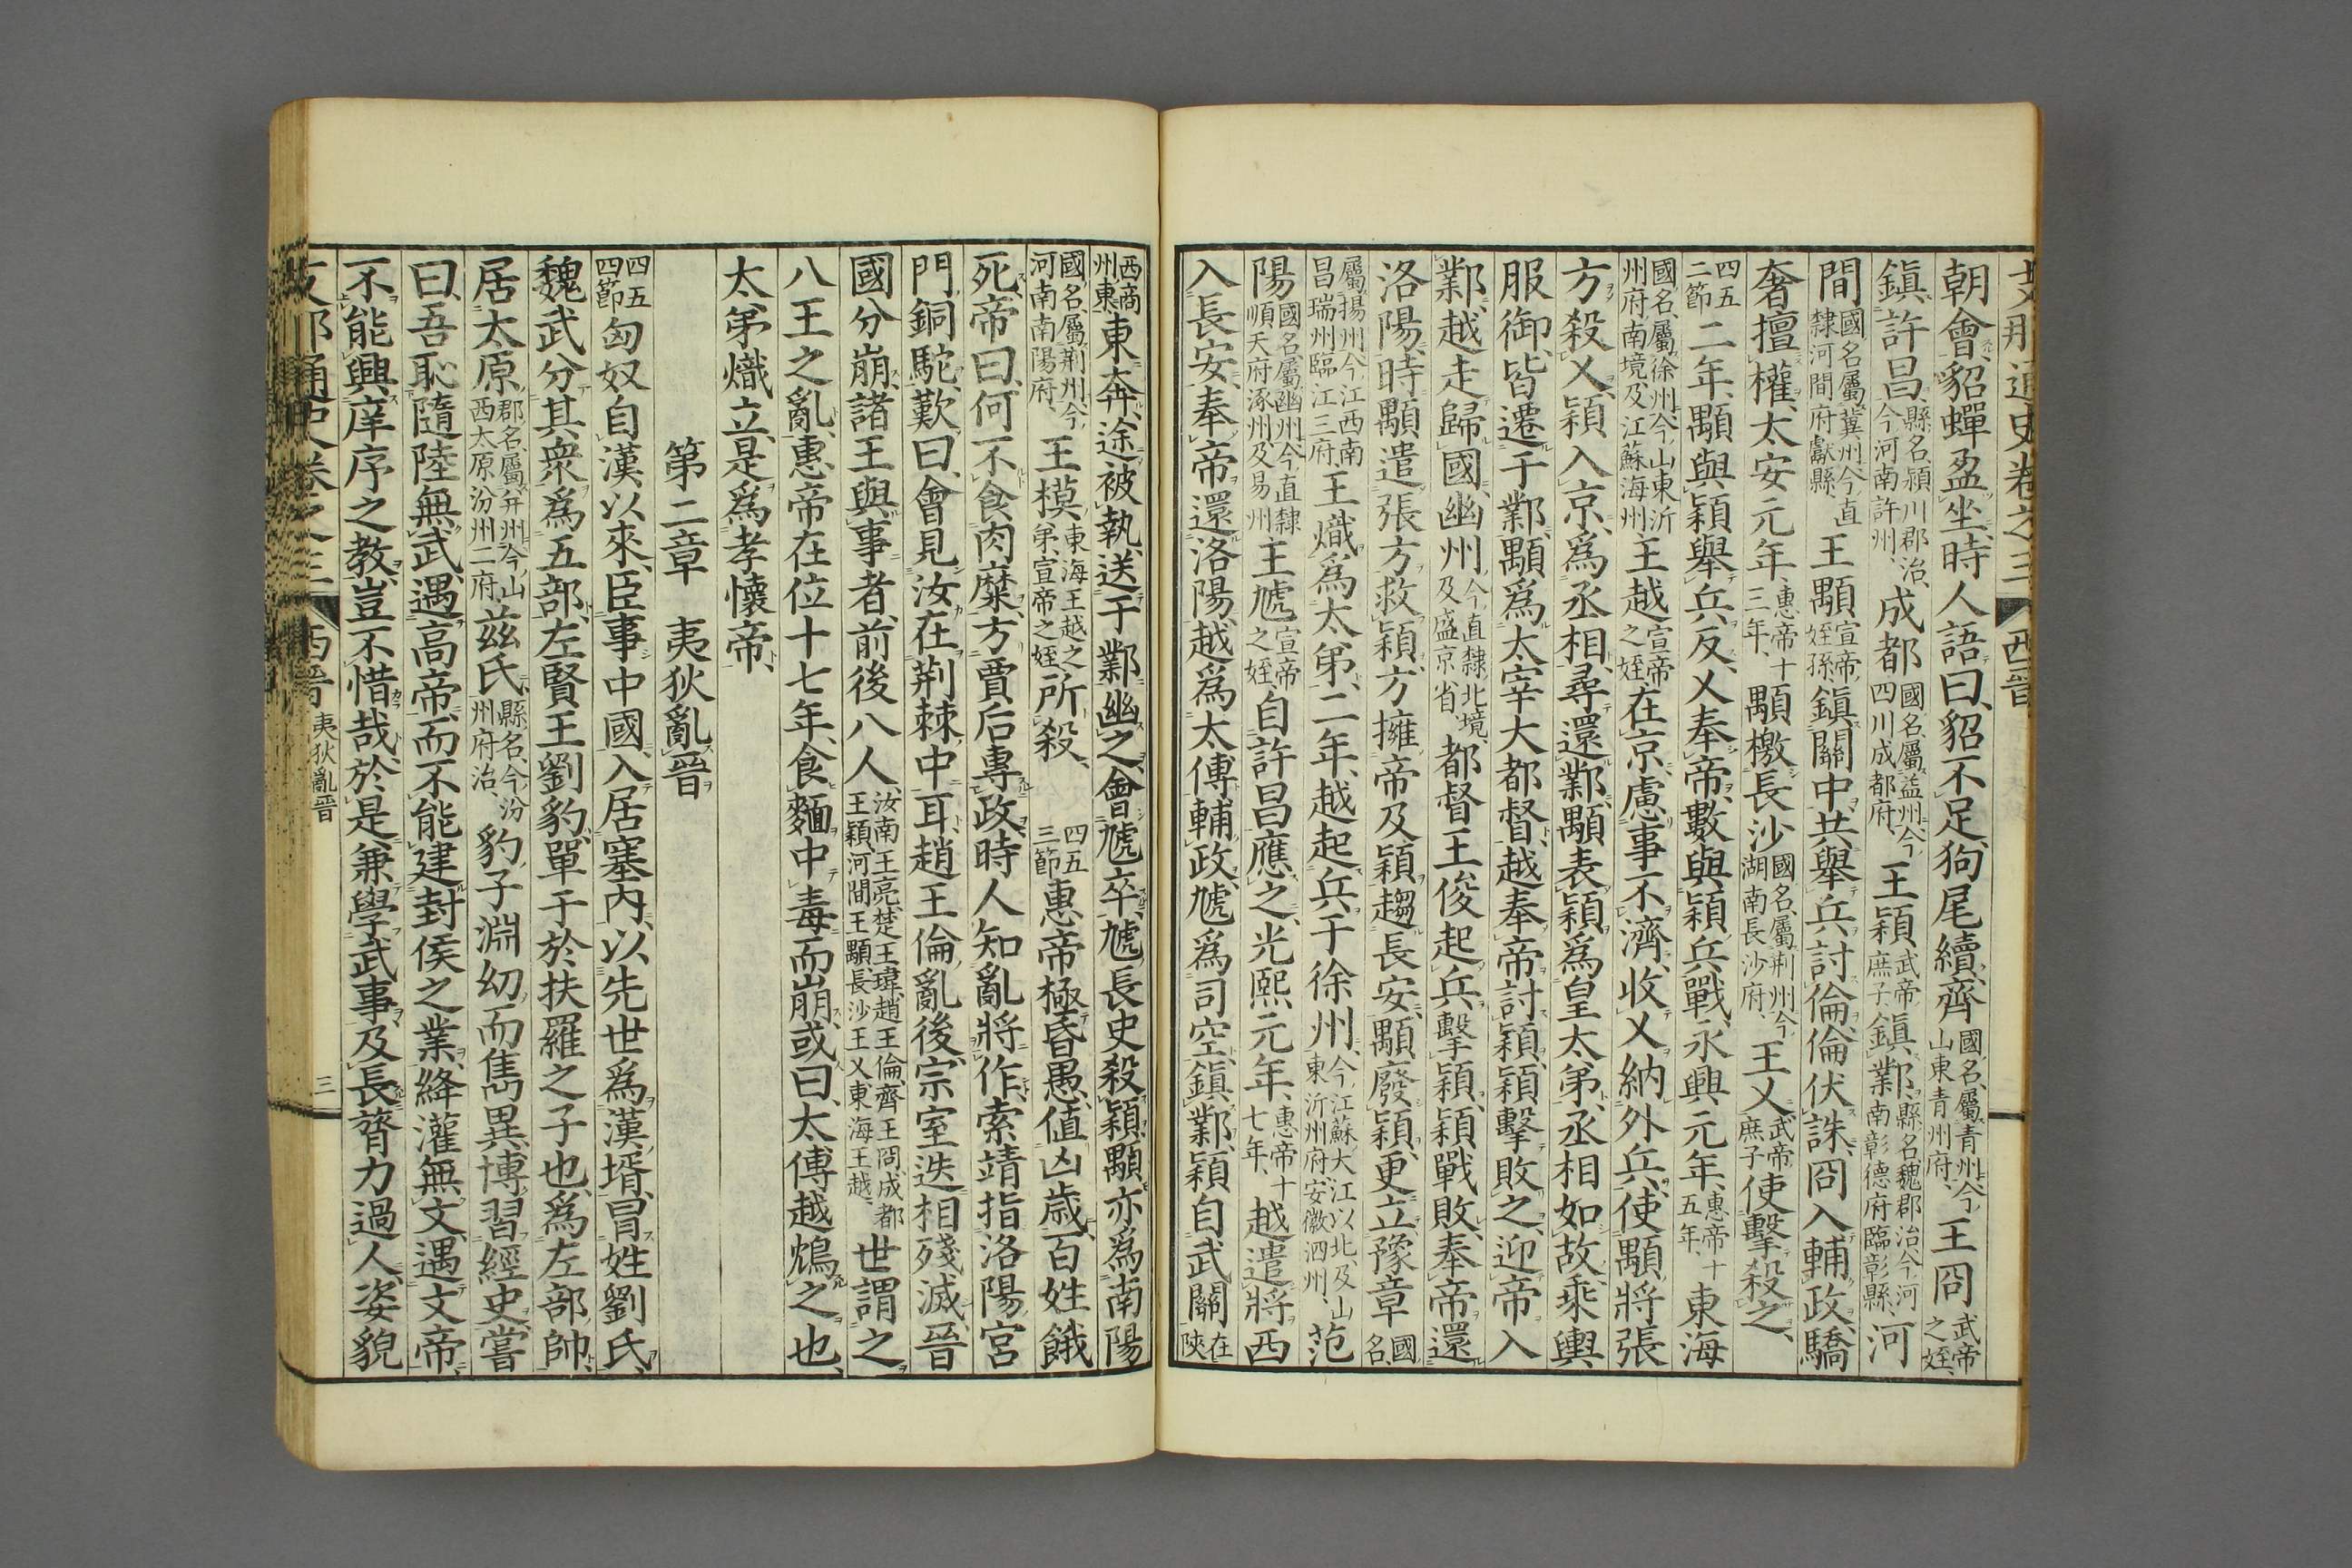 支那通史卷之三 西晉
朝會、貂蟬盈坐、時人語曰、貂不足、狗尾續、齊國名、屬青州、今山東青州府、王冏武帝之姪、
鎭許昌、縣名、潁川郡治、今河南許州、成都國名、屬益州、今四川成都府、王穎武帝庶子、鎭鄴、縣名、魏郡治、今河南彰德府臨彰縣、河
間國名、屬冀州、今直隸河間府獻縣、王顒宣帝姪孫、鎭關中、共舉兵討倫、倫伏誅、冏入輔政、驕
奢擅權、太安元年、惠帝十三年、顒檄長沙國名、屬荆州、今湖南長沙府、王乂武帝庶子、使擊殺之、
四五二節二年、顒與穎舉兵反、乂奉帝、數與穎兵戰、永興元年、惠帝十五年、東海
國名、屬徐州、今山東沂州府南境、及江蘇海州、王越宣帝之姪、在京、慮事不濟、收乂納外兵、使顒將張
方殺乂、穎入京、爲丞相、尋還鄴、顒表穎爲皇太弟、丞相如故、乘輿
服御、皆遷于鄴、顒爲太宰大都督、越奉帝討穎、穎擊敗之、迎帝入
鄴、越走歸國、幽州今直隸北境、及盛京省、都督王俊起兵擊穎、穎戰敗、奉帝還
洛陽、時顒遣張方救穎、方擁帝及穎趨長安、顒廢穎、更立豫章國名、
屬揚州、今江西南昌瑞州臨江三府、王熾爲太弟、二年、越起兵于徐州、今江蘇大江以北、及山東沂州府、安徽泗州、范
陽國名、屬幽州、今直隸順天府涿州及易州、王虓宣帝之姪、自許昌應之、光熙元年、惠帝十七年、越遣將西
入長安、奉帝還洛陽、越爲太傅輔政、虓爲司空、鎭鄴、穎自武關在陝
西商州東、東奔、途被執、送于鄴幽之、會虓卒、虓長史殺穎、顒亦爲南陽
國名、屬荆州、今河南南陽府、王模東海王越之弟、宣帝之姪、所殺、四五三節惠帝極昏愚、値凶歲、百姓餓
死、帝曰、何不食肉糜、方賈后專政、時人知亂將作、索靖指洛陽宮
門銅駝、歎曰、會見汝在荆棘中耳、趙王倫亂後、宗室迭相殘滅、晉
國分崩、諸王與事者、前後八人、汝南王亮、楚王瑋、趙王倫、齊王冏、成都王穎、河間王顒、長沙王乂、東海王越、世謂之
八王之亂、惠帝在位十七年、食麵中毒而崩、或曰、太傅越鴆之也、
太弟熾立、是爲孝懷帝、
第二章 夷狄亂晉
四五四節匈奴自漢以來、臣事中國、入居塞內、以先世爲漢壻、冒姓劉氏、
魏武分其衆爲五部、左賢王劉豹、單于於扶羅之子也、爲左部帥、
居太原郡名、屬幷州、今山西太原汾州二府、茲氏、縣名、今汾州府治、豹子淵、幼而雋異、博習經史、嘗
曰、吾恥隨陸無武、遇高帝、而不能建封侯之業、絳灌無文、遇文帝、
不能興庠序之教、豈不惜哉、於是兼學武事、及長膂力過人、姿貌
支那通史卷之三 西晉 夷狄亂晉 三